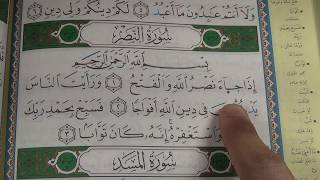 وَلَا أَنتُمْ عَٰبِدُونَ مَا أَعْبُدُ ۝ لَكُمْ دِينُكُمْ وَلِيَ دِينِ ۝
سُورَةُ النَّصْرِ
بِسْمِ اللَّهِ الرَّحْمَٰنِ الرَّحِيمِ
إِذَا جَاءَ نَصْرُ اللَّهِ وَالْفَتْحُ ۝ وَرَأَيْتَ النَّاسَ
فِي دِينِ اللَّهِ أَفْوَاجًا ۝ فَسَبِّحْ بِحَمْدِ رَبِّكَ
وَاسْتَغْفِرْهُ إِنَّهُ كَانَ تَوَّابًا ۝
سُورَةُ الْمَسَدِ